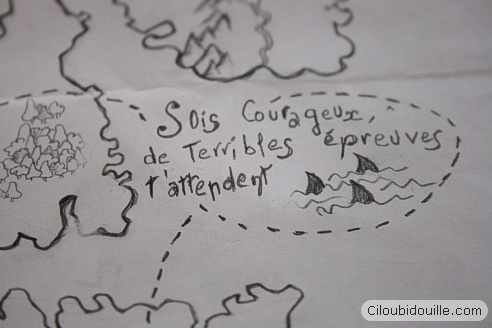 Sois Courageux,
de Terribles épreuves
t'attendent
Ciloubidouille.com